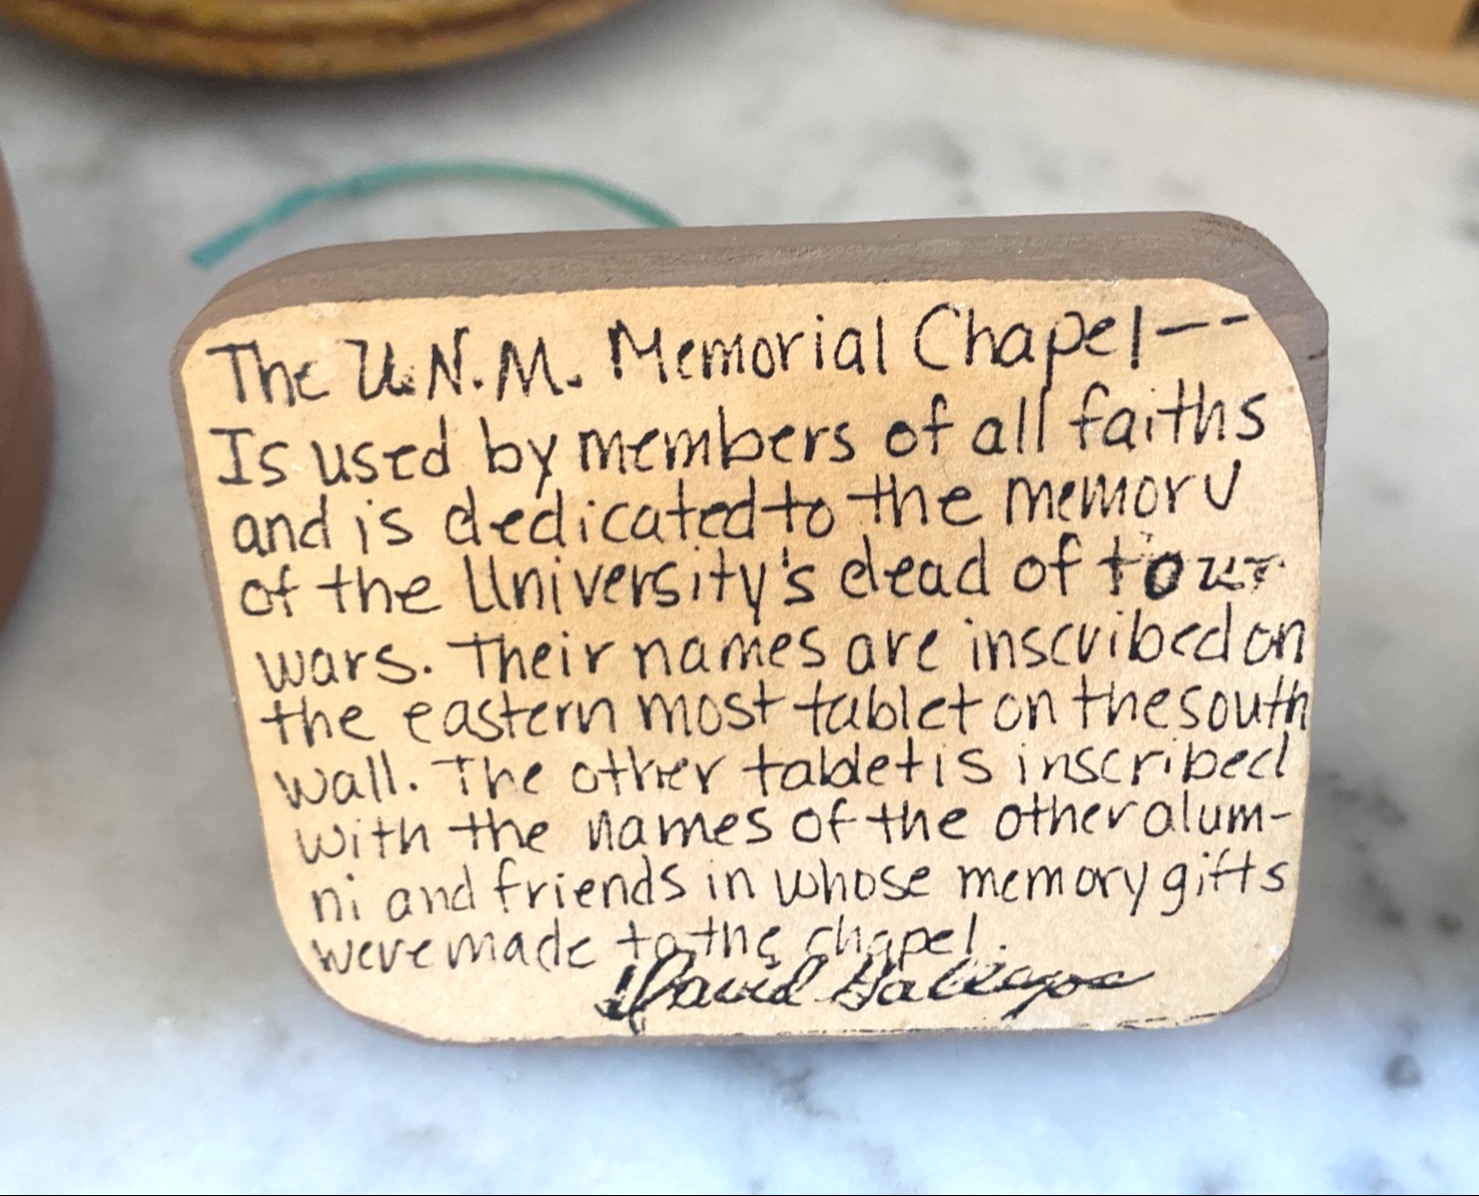 The U.N.M. Memorial Chapel---
Is used by members of all faiths
and is dedicated to the memory
of the University's dead of four
wars. Their names are inscribed on
the eastern most tablet on the south
wall. The other tablet is inscribed
with the names of the other alum-
ni and friends in whose memory gifts
were made to the chapel.
David Gallegos